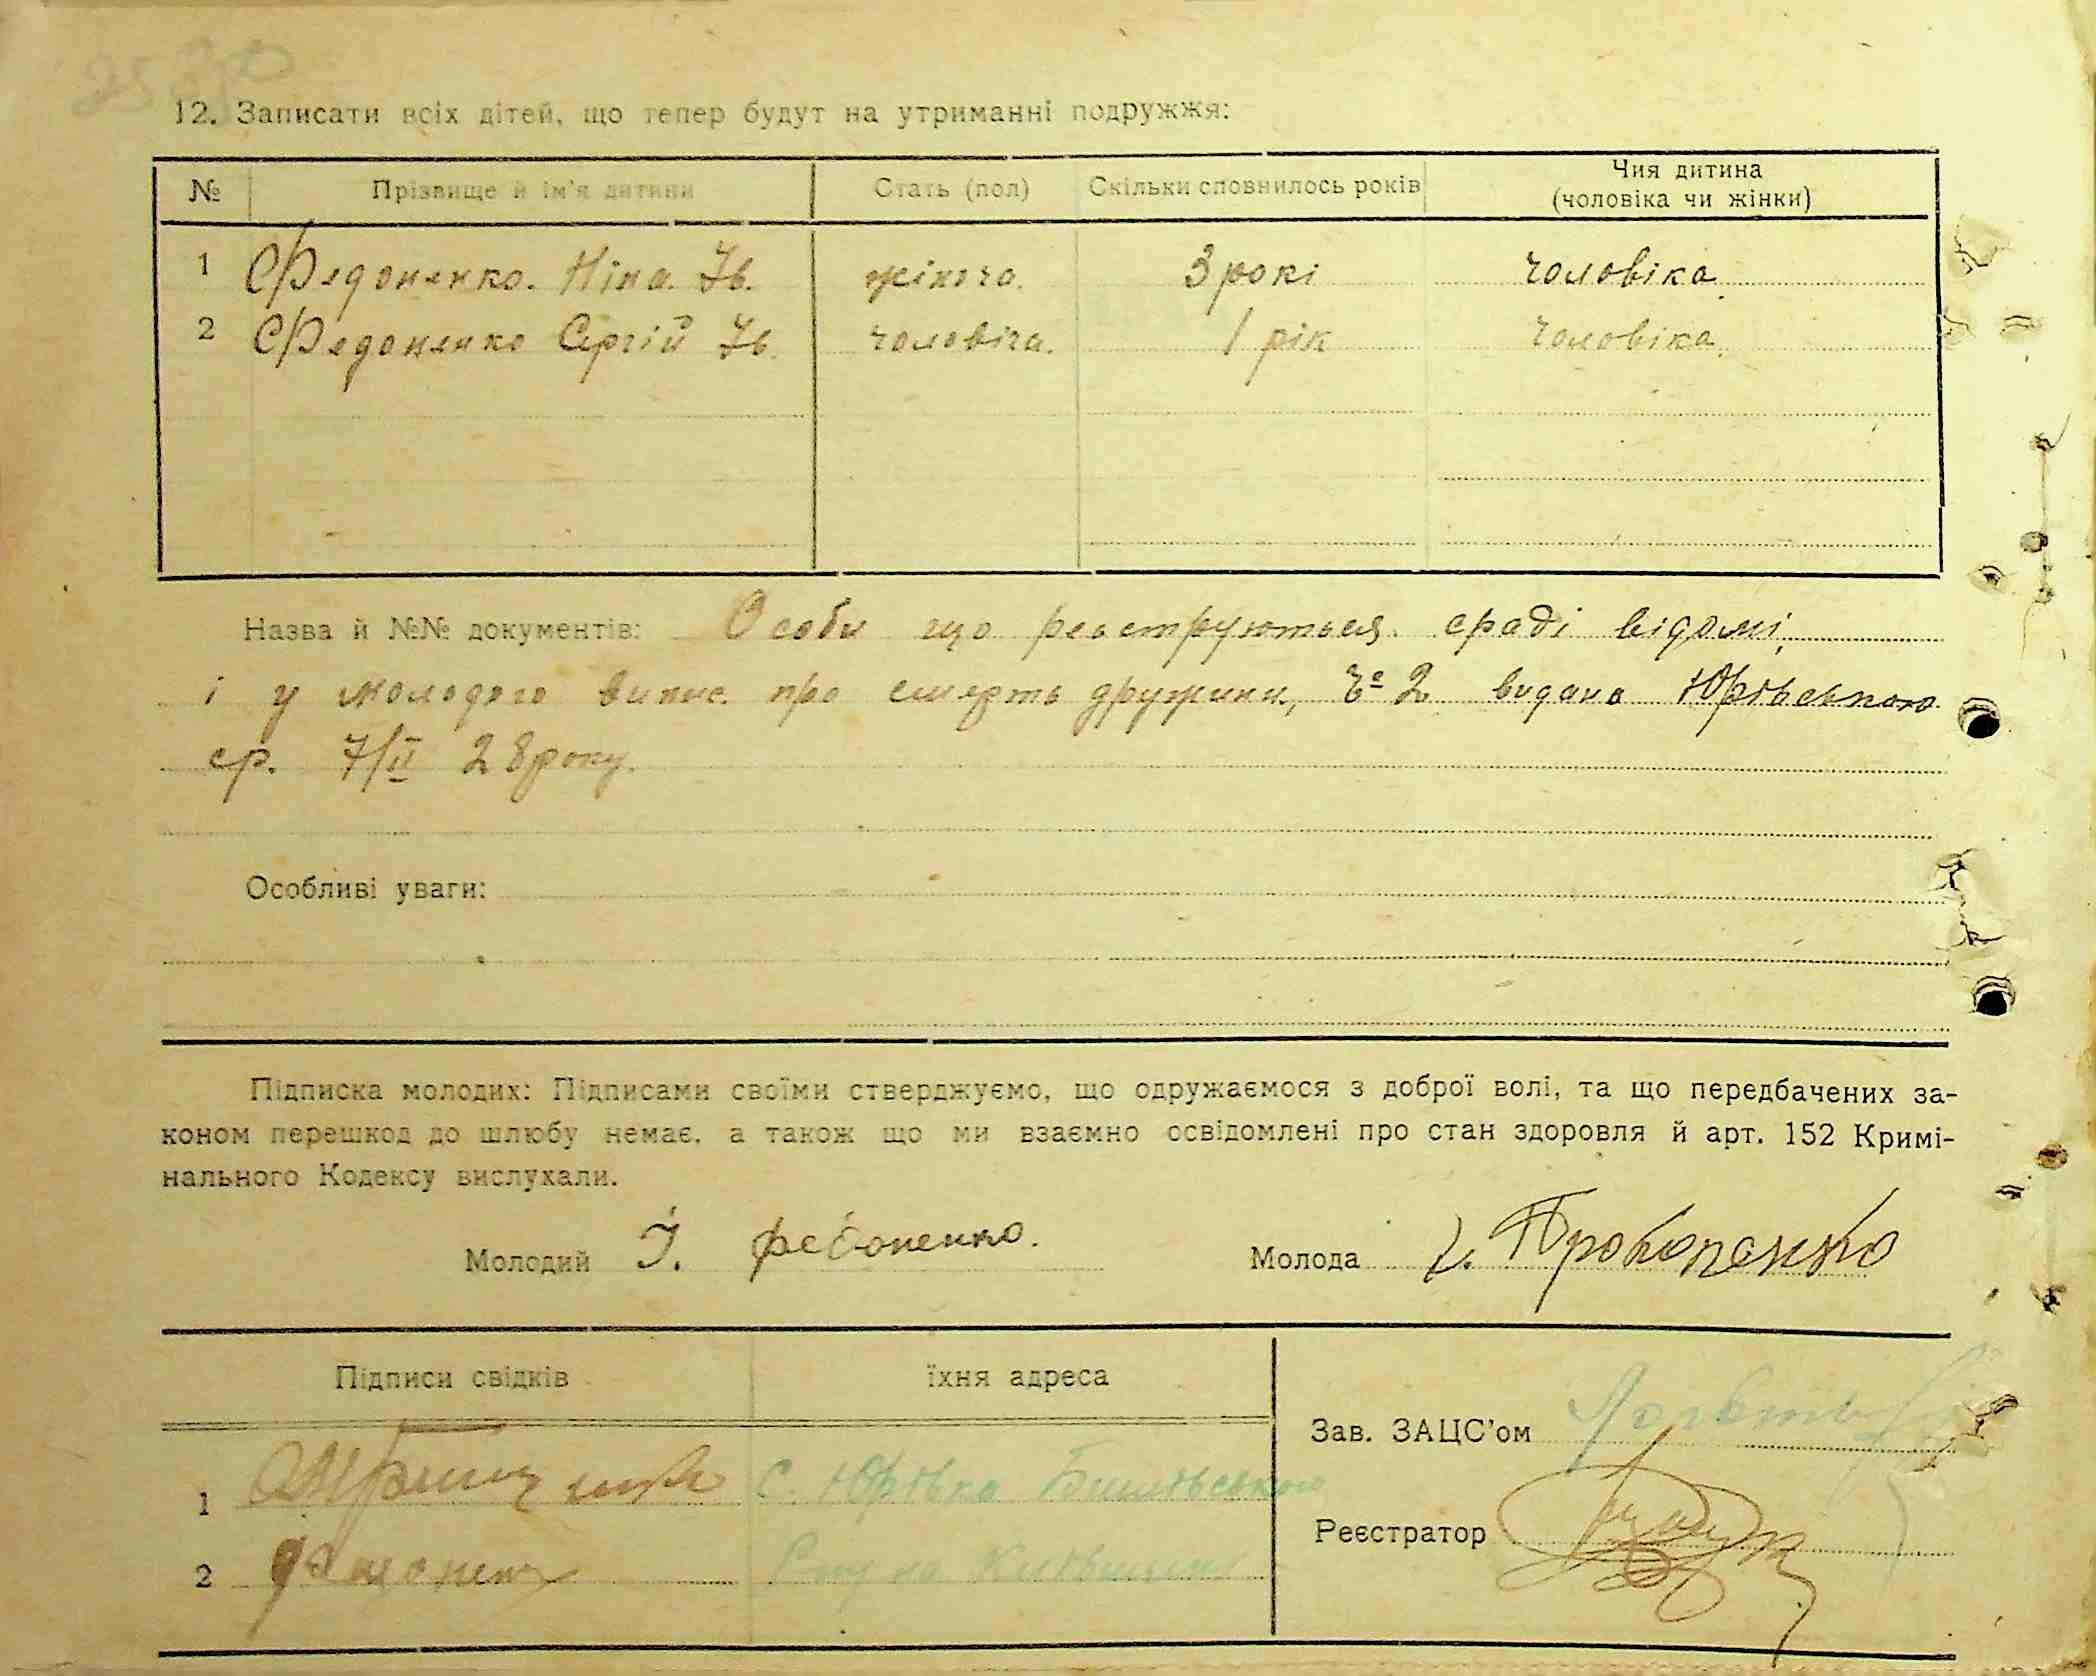 12. Записати всіх дітей, що тепер будут на утриманні подружжя:
№ Прізвище й ім'я дитини Стать (пол) Скільки сповнилось років Чия дитина
(чоловіка чи жінки)
1 Федоненко. Ніна. Ів. жіноча. 3 рокі чоловіка
2 Федоненко Сергій Ів. чоловіча. 1 рік чоловіка.
Назва й №№ документів: Особи що реєструються. сраді відомі,
і у молодого випис. про смерть дружини, 2 видана Юрівською
ср. 7/II 28 року.
Особливі уваги:
Підписка молодих: Підписами своїми стверджуємо, що одружаємося з доброї волі, та що передбачених за-
коном перешкод до шлюбу немає, а також що ми взаємно освідомлені про стан здоровля й арт. 152 Кримі-
нального Кодексу вислухали.
Молодий І. Федоненко. Молода Прокопенко
Підписи свідків їхня адреса
Зав. ЗАЦС'ом
1 С. Юрівка
Реєстратор
2